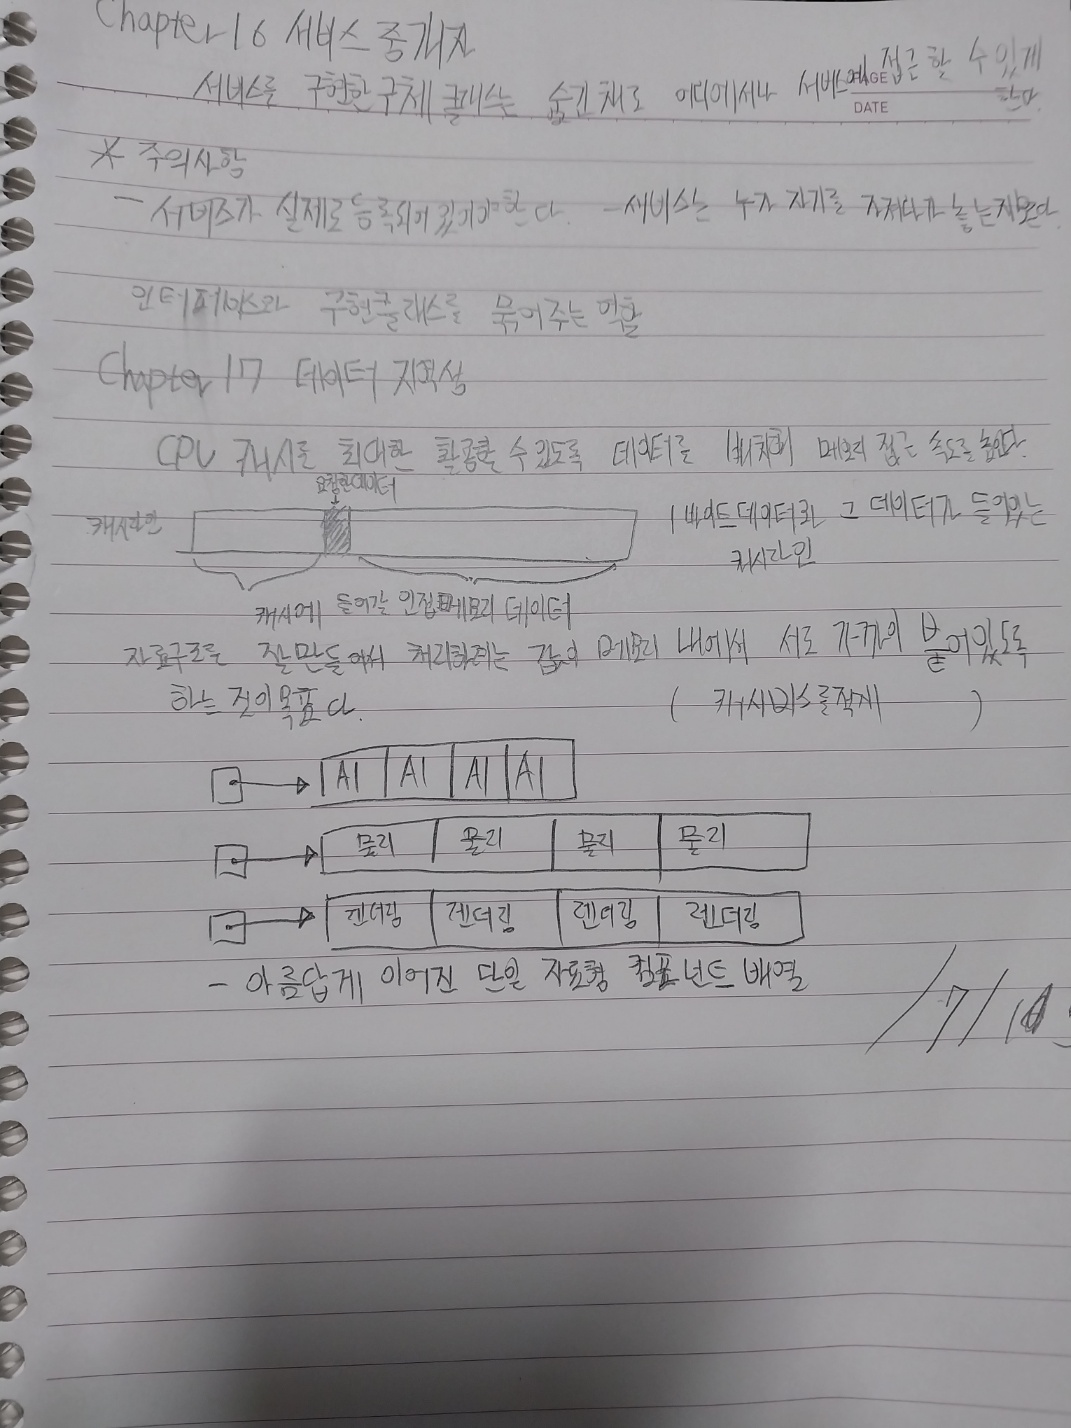 Chapter 16 서비스 중개자
서비스를 구현한 구체 클래스는 숨긴 채로 어디에서나 서비스에 접근할 수 있게
한다.
PAGE
DATE
* 주의사항
- 서비스가 실제로 등록되어 있어야 한다. - 서비스는 누가 자기를 가져다가 놓는지 모른다.
인터페이스와 구현클래스를 묶어주는 역할
Chapter 17 데이터 지역성
CPU 캐시를 최대한 활용할 수 있도록 데이터를 배치해 메모리 접근 속도를 높인다.
요청한 데이터
캐시라인
1바이트 데이터와 그 데이터가 들어있는
캐시라인
캐시에 들어갈 인접 메모리 데이터
자료구조를 잘 만들어서 처리하려는 값이 메모리 내에서 서로 가까이 붙어있도록
하는 것이 목표다.
( 캐시미스를 적게 )
AI AI AI AI
물리 물리 물리 물리
렌더링 렌더링 렌더링 렌더링
- 아름답게 이어진 단일 자료형 컴포넌트 배열
/7/